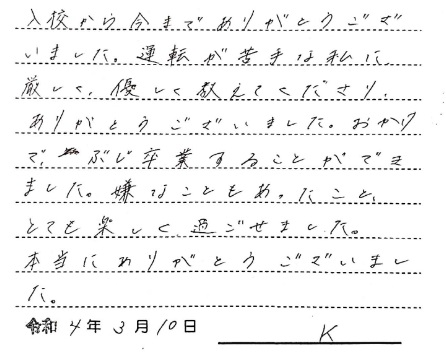 入校から今までありがとうござ
いました。運転が苦手な私に
厳しく、優しく教えてくださり、
ありがとうございました。おかげ
で、ぶじ卒業することができ
ました。嫌なこともあったこと、
とても楽しく過ごせました。
本当にありがとうございまし
た。
令和 4年 3月 10日
K